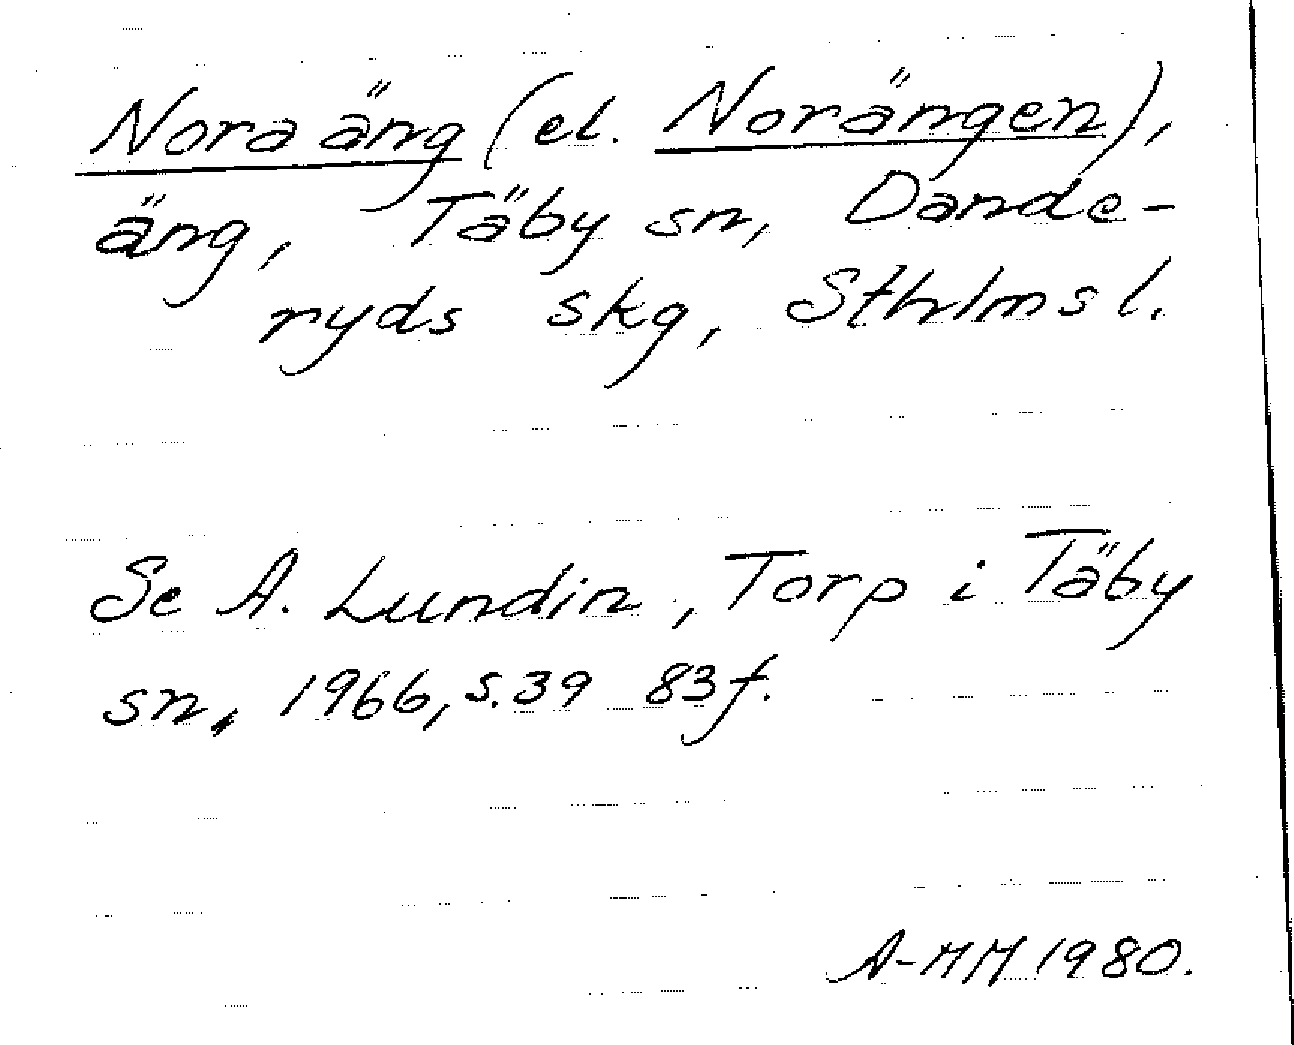 Nora äng (el. Norängen),
äng, Täby sn, Dande-
ryds skg, Sthlms l.
Se A. Lundin, Torp i Täby
sn, 1966, s. 39 83 f.
A-MM 1980.